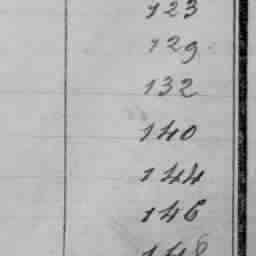 123
129
132
140
144
146
148